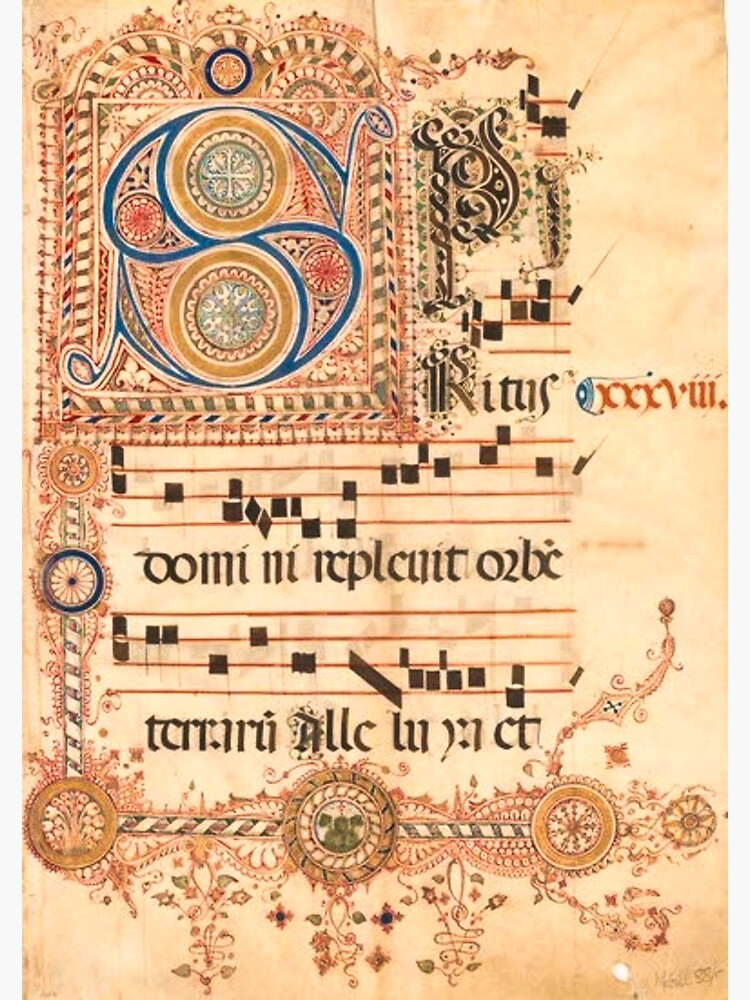 SPI
Ritus xxxviii.
domi ni repleuit orbē
terrarū Alle lu ya et